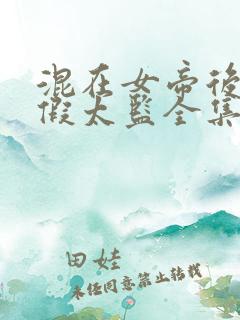 混在女帝後
假太監全集
田娃
未经同意禁止转载